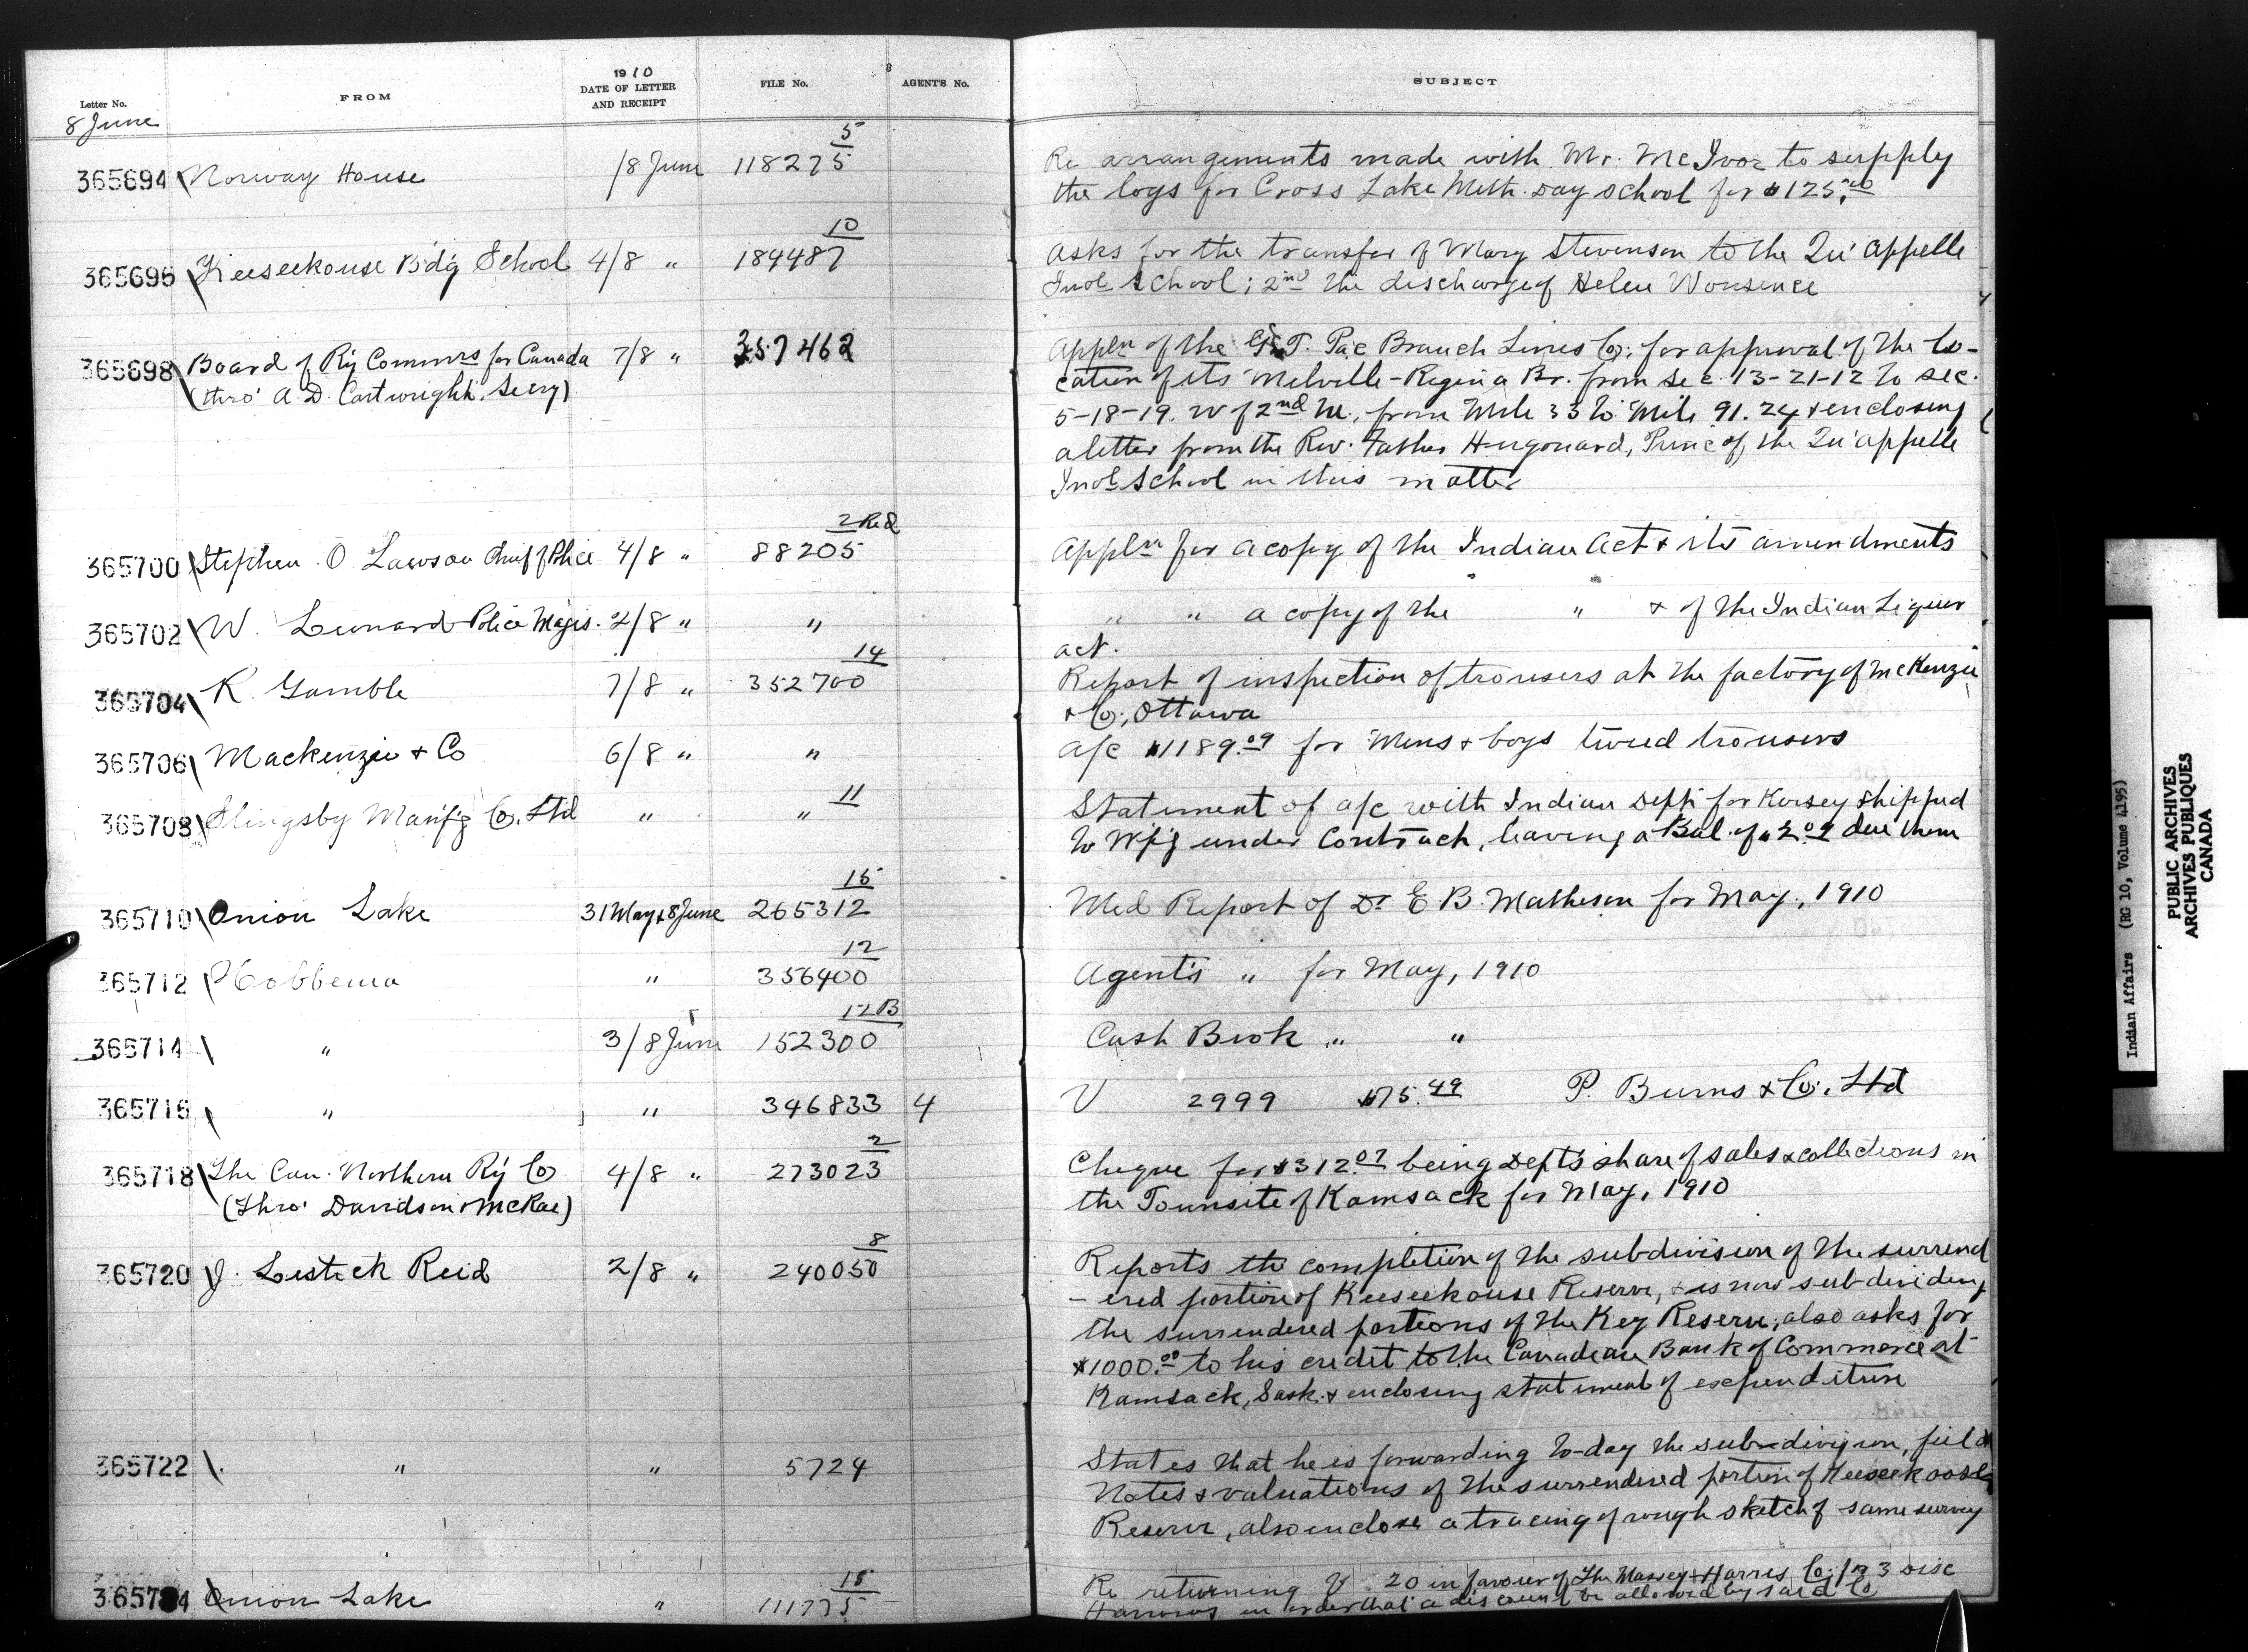 1910
Letter No. FROM DATE OF LETTER AND RECEIPT FILE No. AGENT'S No. SUBJECT
8 June
5
365694 Norway House /8 June 118275 Re arrangements made with Mr. McIvor to supply
the logs for Cross Lake Meth. Day School for $125.00
10
365696 Keeseekouse Bdg School 4/8 " 184487 Asks for the transfer of Mary Stevenson to the Qu'Appelle
Indl School; 2nd the discharge of Helen
365698 Board of Ry Commrs for Canada 7/8 " 357462 Appln of the G.T. Pac Branch Lines Co; for approval of the lo-
(thro' A.D. Cartwright, Secy) cation of its Melville-Regina Br. from Sec. 13-21-12 to sec.
5-18-19. W of 2nd M., from Mile 33 to Mile 91.24 & enclosing
a letter from the Rev. Father Hugonard, Princ of the Qu'Appelle
Indl School in this matter
2 Red
365700 Stephen O Lawson Chief of Police 4/8 " 88205 Appln for a copy of the Indian Act & its amendments
365702 W. Leonard Police Magis. 2/8 " " " " a copy of the " & of the Indian Liquor
act.
14
365704 R. Gamble 7/8 " 352700 Report of inspection of trousers at the factory of McKenzie
& Co; Ottawa
365706 Mackenzie & Co 6/8 " " a/c $1189.09 for Mens & boys tweed trousers
11
365708 Slingsby Manfg Co. Ltd " " Statement of a/c with Indian Dept for Kersey shipped
to Wpg under Contract, leaving a Bal. of $2.09 due them
15
365710 Onion Lake 31 May & 8 June 265312 Med Report of Dr E B. Matheson for May, 1910
12
365712 Hobbema " 356400 Agent's " for May, 1910
12B
365714 " 3/8 June 152300 Cash Book " "
365716 " " 346833 4 V 2999 $75.49 P. Burns & Co. Ltd
2
365718 The Can. Northern Ry Co 4/8 " 273023 Cheque for $312.07 being Dept's share of sales & collections in
(Thro' Davidson & McRae) the Townsite of Kamsack for May, 1910
8
365720 J. Lestock Reid 2/8 " 240050 Reports the completion of the subdivision of the surrend
-ered portion of Keeseekouse Reserve, & is now subdividing
the surrendered portions of the Key Reserve, also asks for
$1000.00 to his credit to the Canadian Bank of Commerce at
Kamsack, Sask. & enclosing statement of expenditure
365722 " " 5724 States that he is forwarding to-day the sub-division, field
Notes & valuations of the surrendered portion of
Reserve, also enclose a tracing of rough sketch of same survey
15
Onion Lake " 111775 Re returning V 20 in favour of The Massey-Harris Co; for 3 Disc
Harrows in order that a discount be allowed by said Co
Indian Affairs (RG 10, Volume 4195)
PUBLIC ARCHIVES
ARCHIVES PUBLIQUES
CANADA